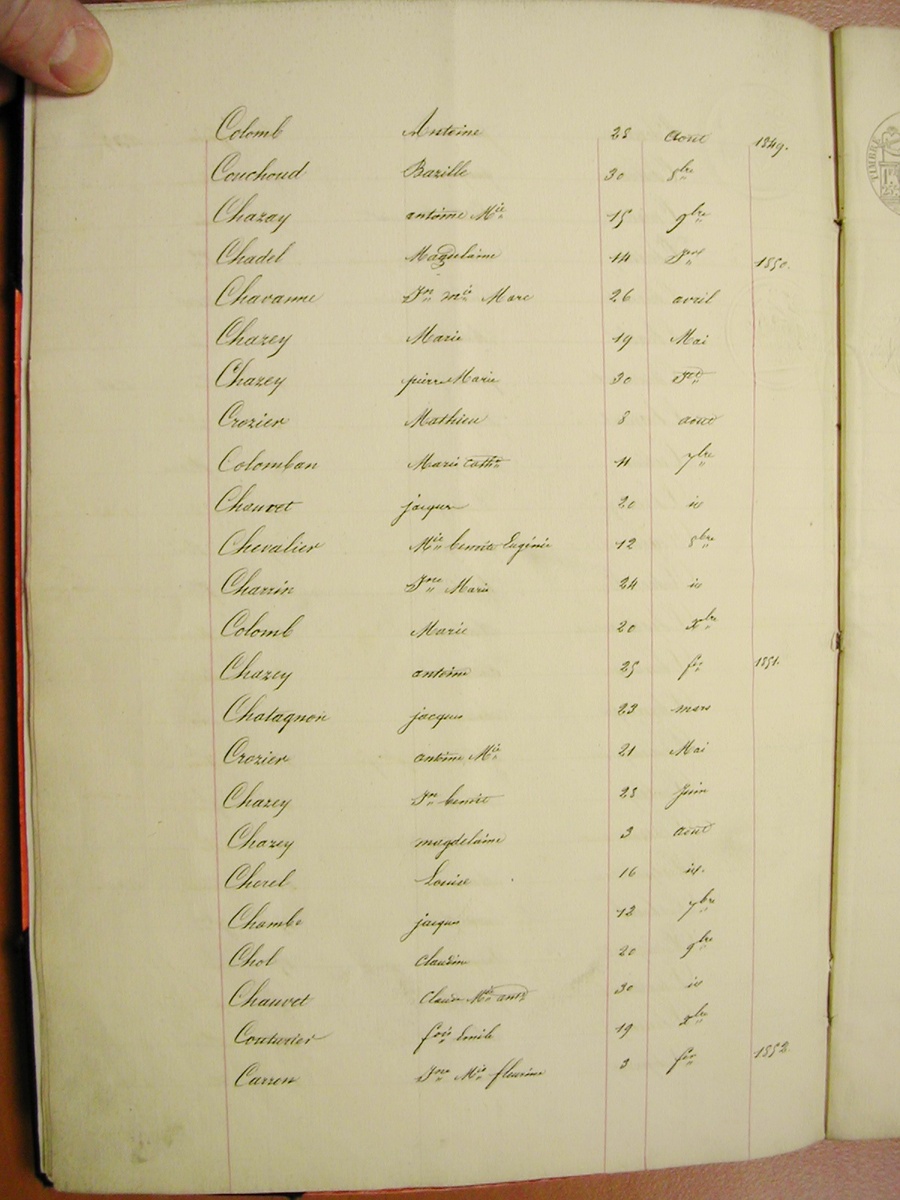 Colomb Antoine 28 Aout 1849.
Couchoud Bazille 30 8bre
Chazay antoine Mie 15 9bre
Chadel Magdelaine 14 1850.
Chavanne Jn Mie Marc 26 avril
Chazey Marie 19 Mai
Chazey pierre Marie 30
Crozier Mathieu 8 aout
Colomban Marie Cathe 11 7bre
Chauvet jacques 20 id
Chevalier Mie benoite Eugénie 12 8bre
Charrin Jne Marie 24 id
Colomb Marie 20 Xbre
Chazey antoine 25 fer 1851.
Chatagnon jacques 23 mars
Crozier antoine Mie 21 Mai
Chazey Jn benoit 28 Juin
Chazey magdelaine 3 aout
Cherel Louise 16 id.
Chambe jacques 12 7bre
Chol Claudine 20 9bre
Chauvet Mie 30 id
Couturier fois Emile 19 Xbre
Carron Jne Mie fleurine 3 fer 1852
TIMBRE